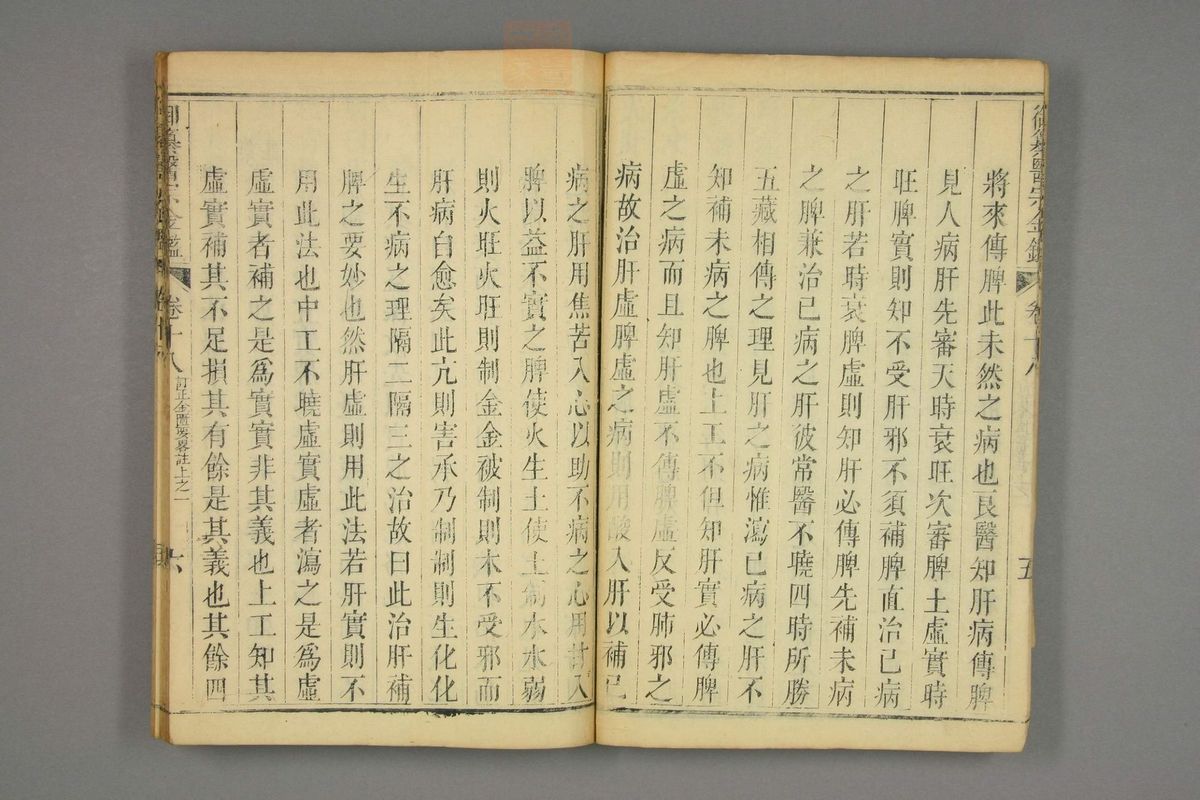 御纂醫宗金鑑 卷十八 五
將來傳脾此未然之病也良醫知肝病傳脾
見人病肝先審天時衰旺次審脾土虛實時
旺脾實則知不受肝邪不須補脾直治已病
之肝若時衰脾虛則知肝必傳脾先補未病
之脾兼治已病之肝彼常醫不曉四時所勝
五藏相傳之理見肝之病惟瀉已病之肝不
知補未病之脾也上工不但知肝實必傳脾
虛之病而且知肝虛不傳脾虛反受肺邪之
病故治肝虛脾虛之病則用酸入肝以補已
病之肝用焦苦入心以助不病之心用甘入
脾以益不實之脾使火生土使土制水水弱
則火旺火旺則制金金被制則木不受邪而
肝病自愈矣此亢則害承乃制制則生化化
生不病之理隔二隔三之治故曰此治肝補
脾之要妙也然肝虛則用此法若肝實則不
用此法也中工不曉虛實虛者瀉之是爲虛
虛實者補之是爲實實非其義也上工知其
虛實補其不足損其有餘是其義也其餘四
御纂醫宗金鑑 卷十八 訂正金匱要畧註上之一 六